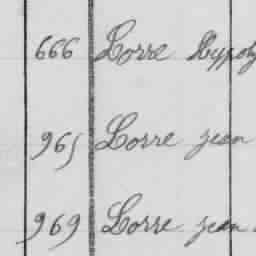 666 Lorre Hypoly
965 Lorre jean
969 Lorre jean